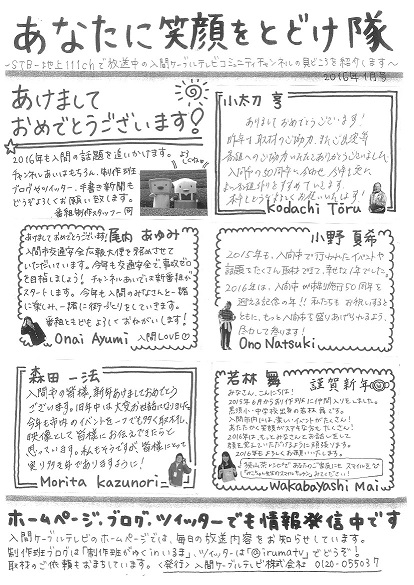 あなたに笑顔をとどけ隊
～STB-地上111chで放送中の入間ケーブルテレビコミュニティチャンネルの見どころを紹介します～
2016年1月号
あけまして
おめでとうございます!
2016年も入間の話題を追いかけます。
チャンネルあいはもちろん、制作班
ブログやツイッター、手書き新聞も
どうぞよろしくお願い致します。
番組制作スタッフ一同
小太刀 亨
あけましておめでとうございます!
Kodachi Tōru
尾内 あゆみ
あけましておめでとうございます!
入間市交通安全広報大使を務めさせて
いただいています。今年も交通安全で、事故ゼロ
を目指しましょう! チャンネルあいでは新番組が
スタートします。今年も入間のみなさんと一緒
に楽しみ、一緒に街づくりをしていきます。
番組ともどもよろしくおねがいします!
Onai Ayumi 入間LOVE♡
小野 夏希
2015年も、入間市で行われたイベントや
話題をたくさん取材できて、幸せな1年でした。
2016年は、入間市が市制施行50周年を
迎える記念の年!! 私たちもお祝いすると
ともに、もっと入間市を盛りあげられるよう、
尽力して参ります!
Ono Natsuki
森田 一法
入間市の皆様、新年あけましておめでとう
ございます。旧年中は大変お世話になりました。
今年も市内のイベントを一つでも多く取材し、
映像として皆様にお伝えできたらと
思っています。私もそうですが、皆様にとって
実り多き年でありますように!
Morita kazunori
若林 舞
謹賀新年
みなさん、こんにちは!
2015年6月から制作班に仲間入りをしました。
黒須小・中学校出身の若林 舞です。
入間市内には、楽しいイベントがたくさん!
あたたかい笑顔がステキな方もたくさん!
2016年は、もっとみなさんとお話しをして
顔を覚えていただけるように頑張ります。
2016年もよろしくお願いいたします。
Wakabayashi Mai
ホームページ、ブログ、ツイッターでも情報発信中です
入間ケーブルテレビのホームページでは、毎日の放送内容をお知らせしています。
制作班ブログは「制作班がゆくinいるま」、ツイッターは「@irumatv」でどうぞ!
取材のご依頼もお待ちしています。<発行> 入間ケーブルテレビ株式会社 0120-055037